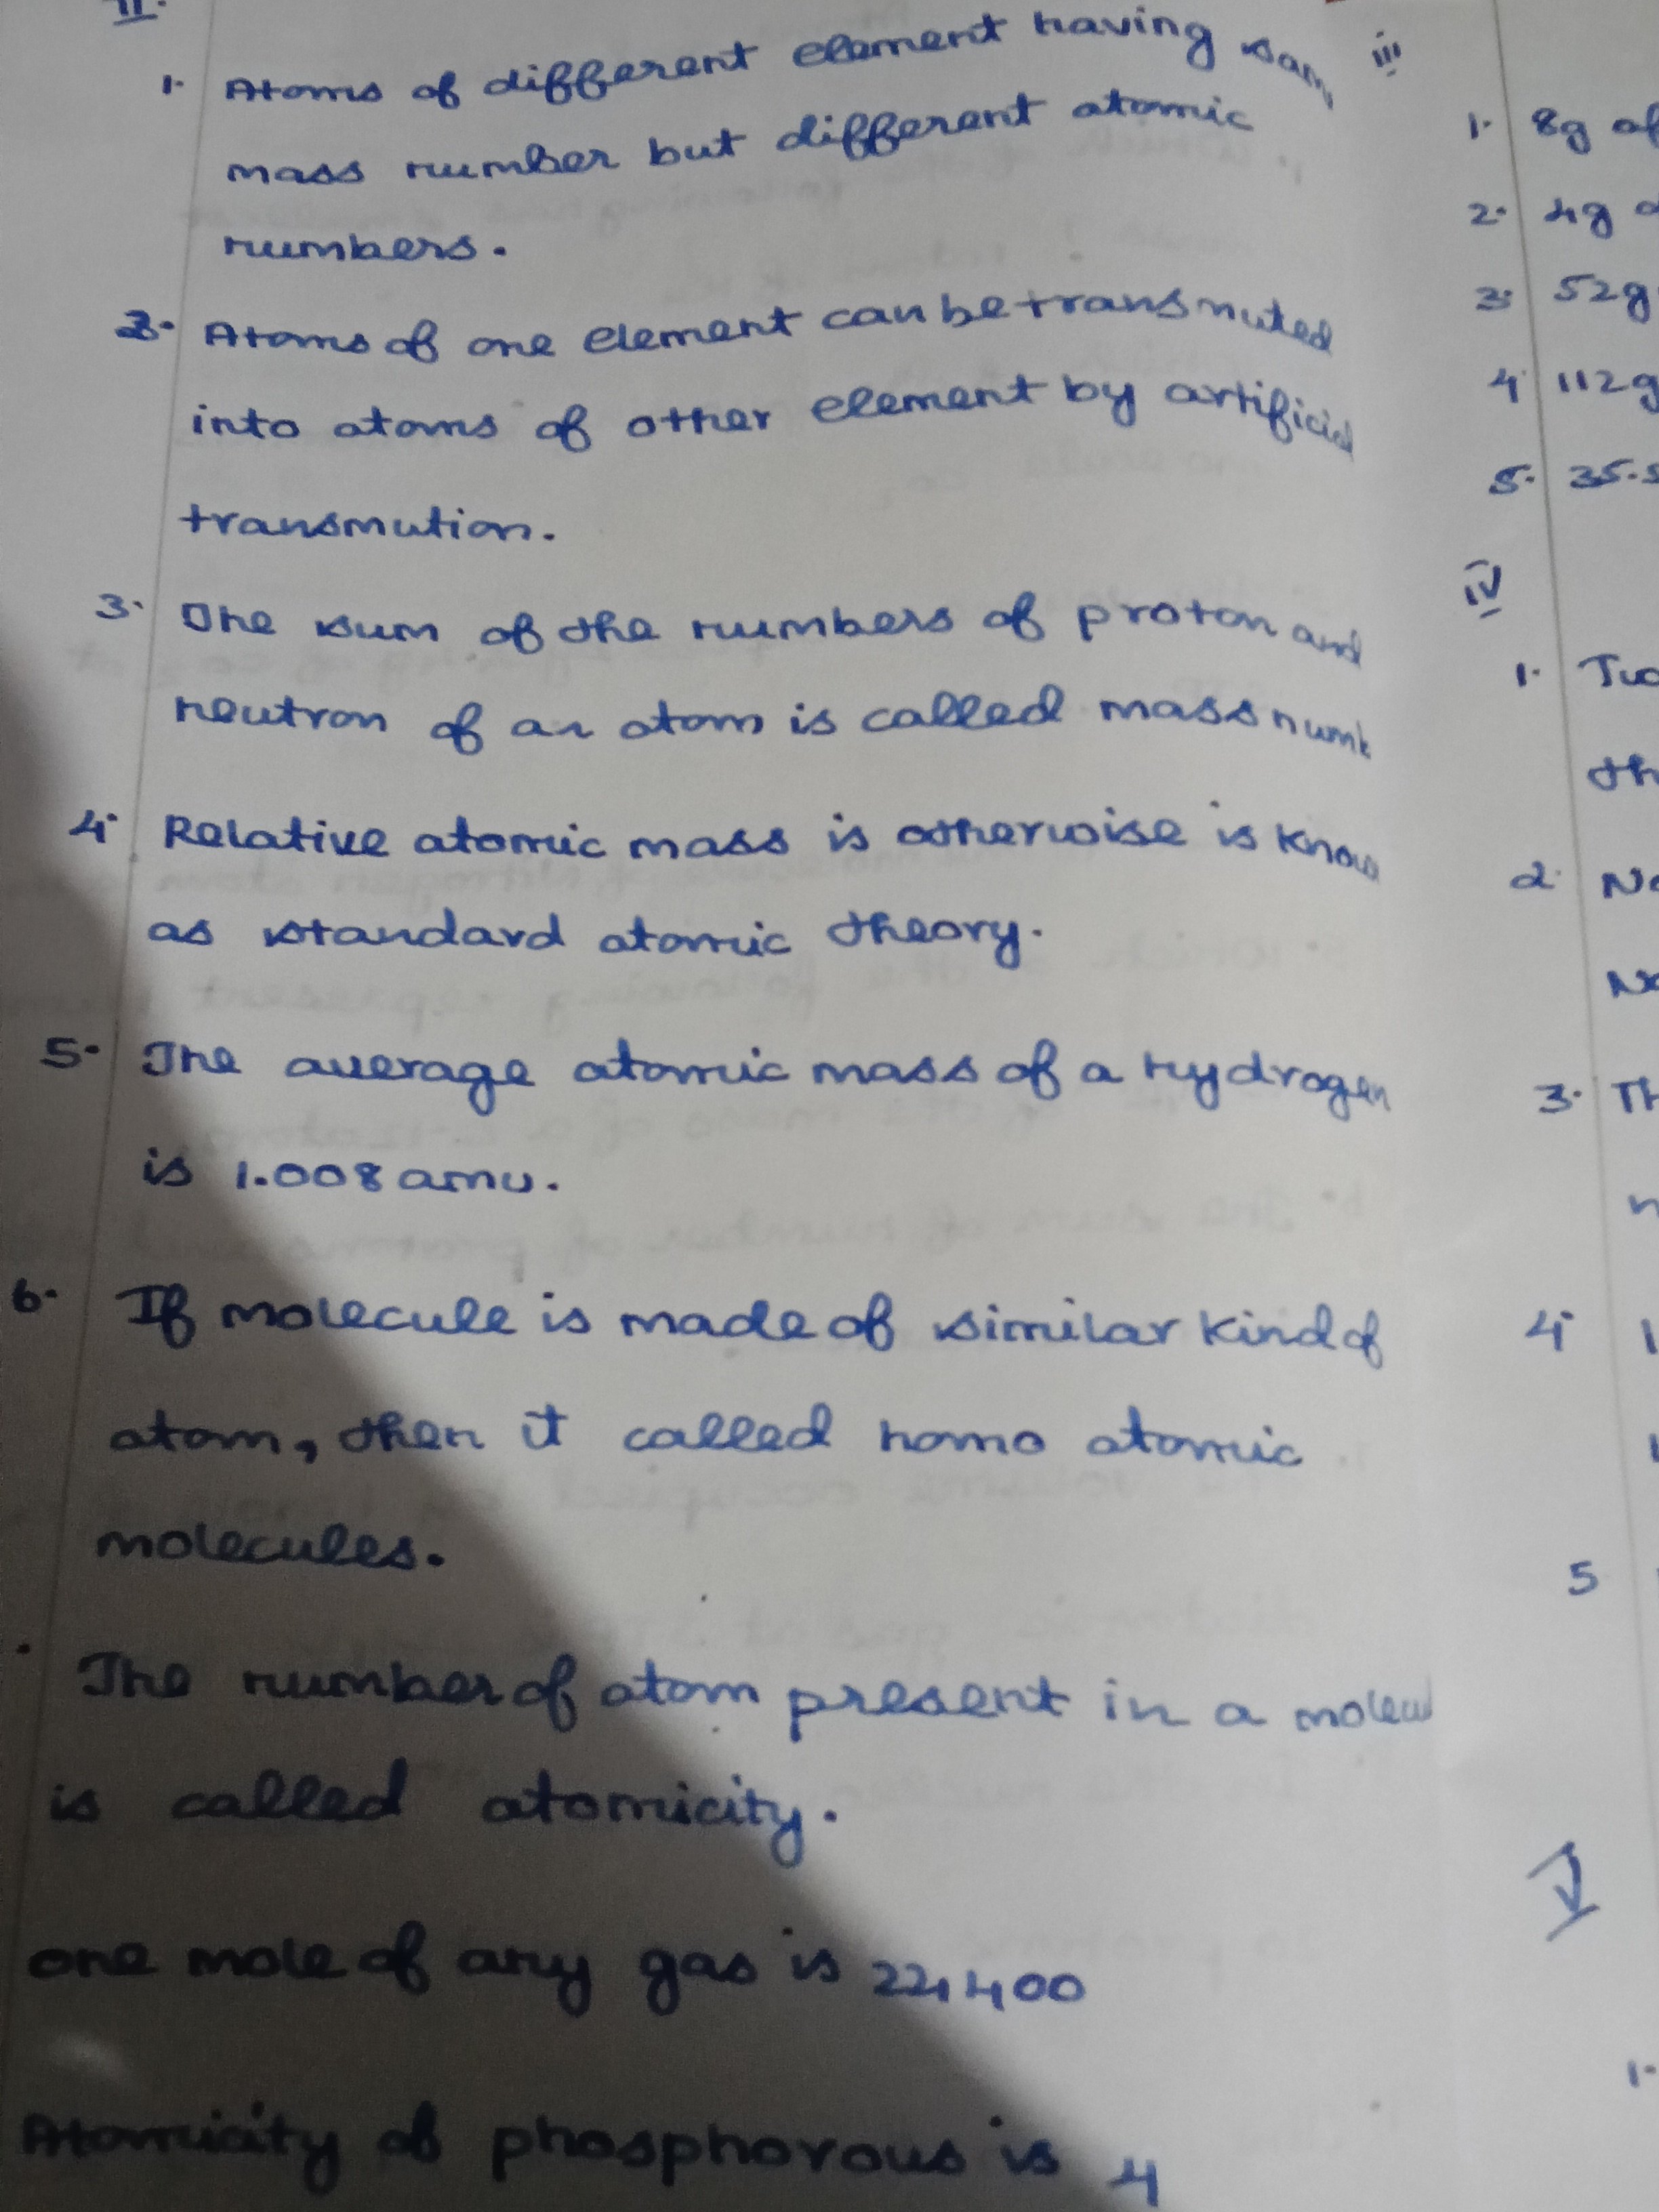 II.
1. Atoms of different element having sam
mass number but different atomic
numbers.
2. Atoms of one element can be transmuted
into atoms of other element by artificial
transmution.
3. The sum of the numbers of proton and
neutron of an atom is called mass numb
4. Relative atomic mass is otherwise is know
as standard atomic theory.
5. The average atomic mass of a hydrogen
is 1.008 amu.
6. If molecule is made of similar kind of
atom, then it called homo atomic
molecules.
The number of atom present in a molecul
is called atomicity.
one mole of any gas is 22,400
Atomicity of phosphorous is 4
iii
1. 8g of
2. 4g
3. 52g
4. 112g
5. 35.5
iv
1.
th
2. No
No
3. Th
n
4. 1
5
V
1.